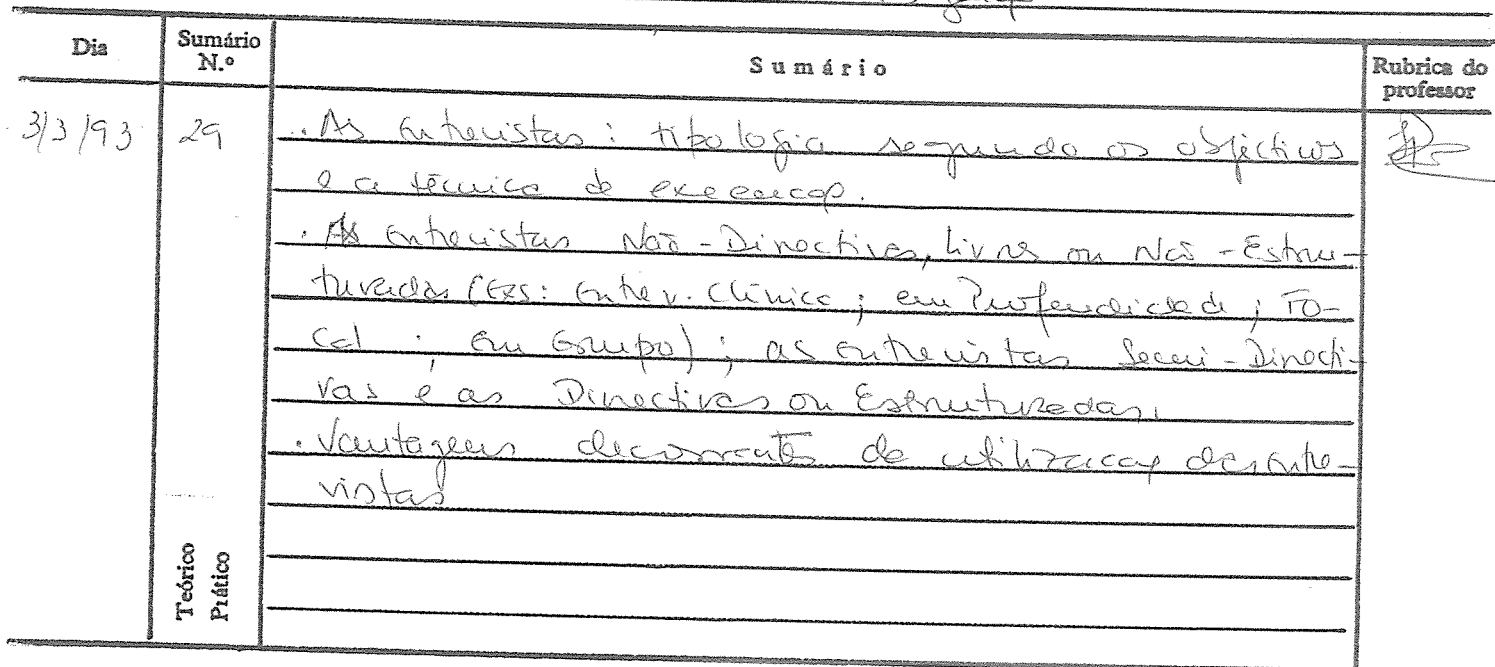 Dia Sumário N.º Sumário Rubrica do professor
3/3/93 29 . As Entrevistas: tipologia segundo os objectivos
e a técnica de execução.
. As Entrevistas Não-Directivas, Livres ou Não-Estru-
turadas (Exs: Entrev. Clínica; em Profundidade; Fo-
cal; Em Grupo); as Entrevistas Semi-Directi-
vas e as Directivas ou Estruturadas.
. Vantagens decorrentes da utilização das Entre-
vistas
Teórico
Prático